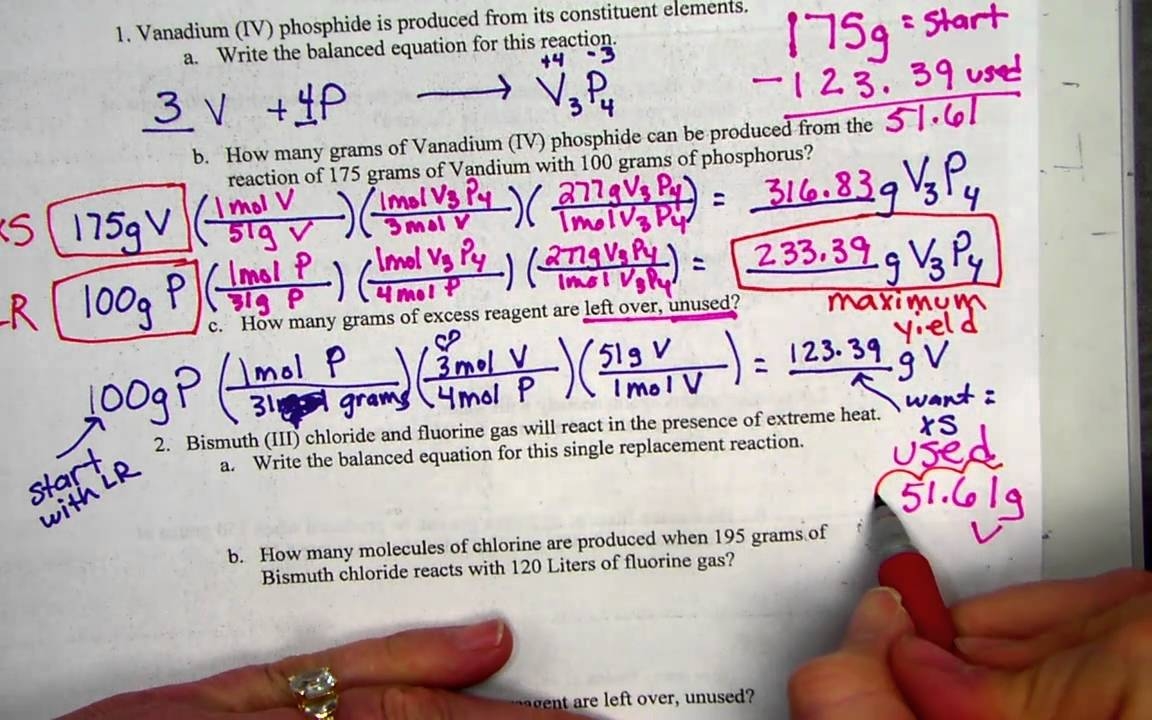 1. Vanadium (IV) phosphide is produced from its constituent elements.
a. Write the balanced equation for this reaction.
175g = Start
- 123.39 used
51.61
+4 -3
3 V + 4P → V3P4
b. How many grams of Vanadium (IV) phosphide can be produced from the
reaction of 175 grams of Vandium with 100 grams of phosphorus?
XS 175g V (1mol V / 51g V)(1mol V3P4 / 3mol V)(277g V3P4 / 1mol V3P4) = 316.83 g V3P4
LR 100g P (1mol P / 31g P)(1mol V3P4 / 4mol P)(277g V3P4 / 1mol V3P4) = 233.39 g V3P4
maximum
yield
c. How many grams of excess reagent are left over, unused?
100g P (1mol P / 31 grams)(3mol V / 4mol P)(51g V / 1mol V) = 123.39 g V
start
with LR
want =
xS
used
51.61g
V
2. Bismuth (III) chloride and fluorine gas will react in the presence of extreme heat.
a. Write the balanced equation for this single replacement reaction.
b. How many molecules of chlorine are produced when 195 grams of
Bismuth chloride reacts with 120 Liters of fluorine gas?
are left over, unused?